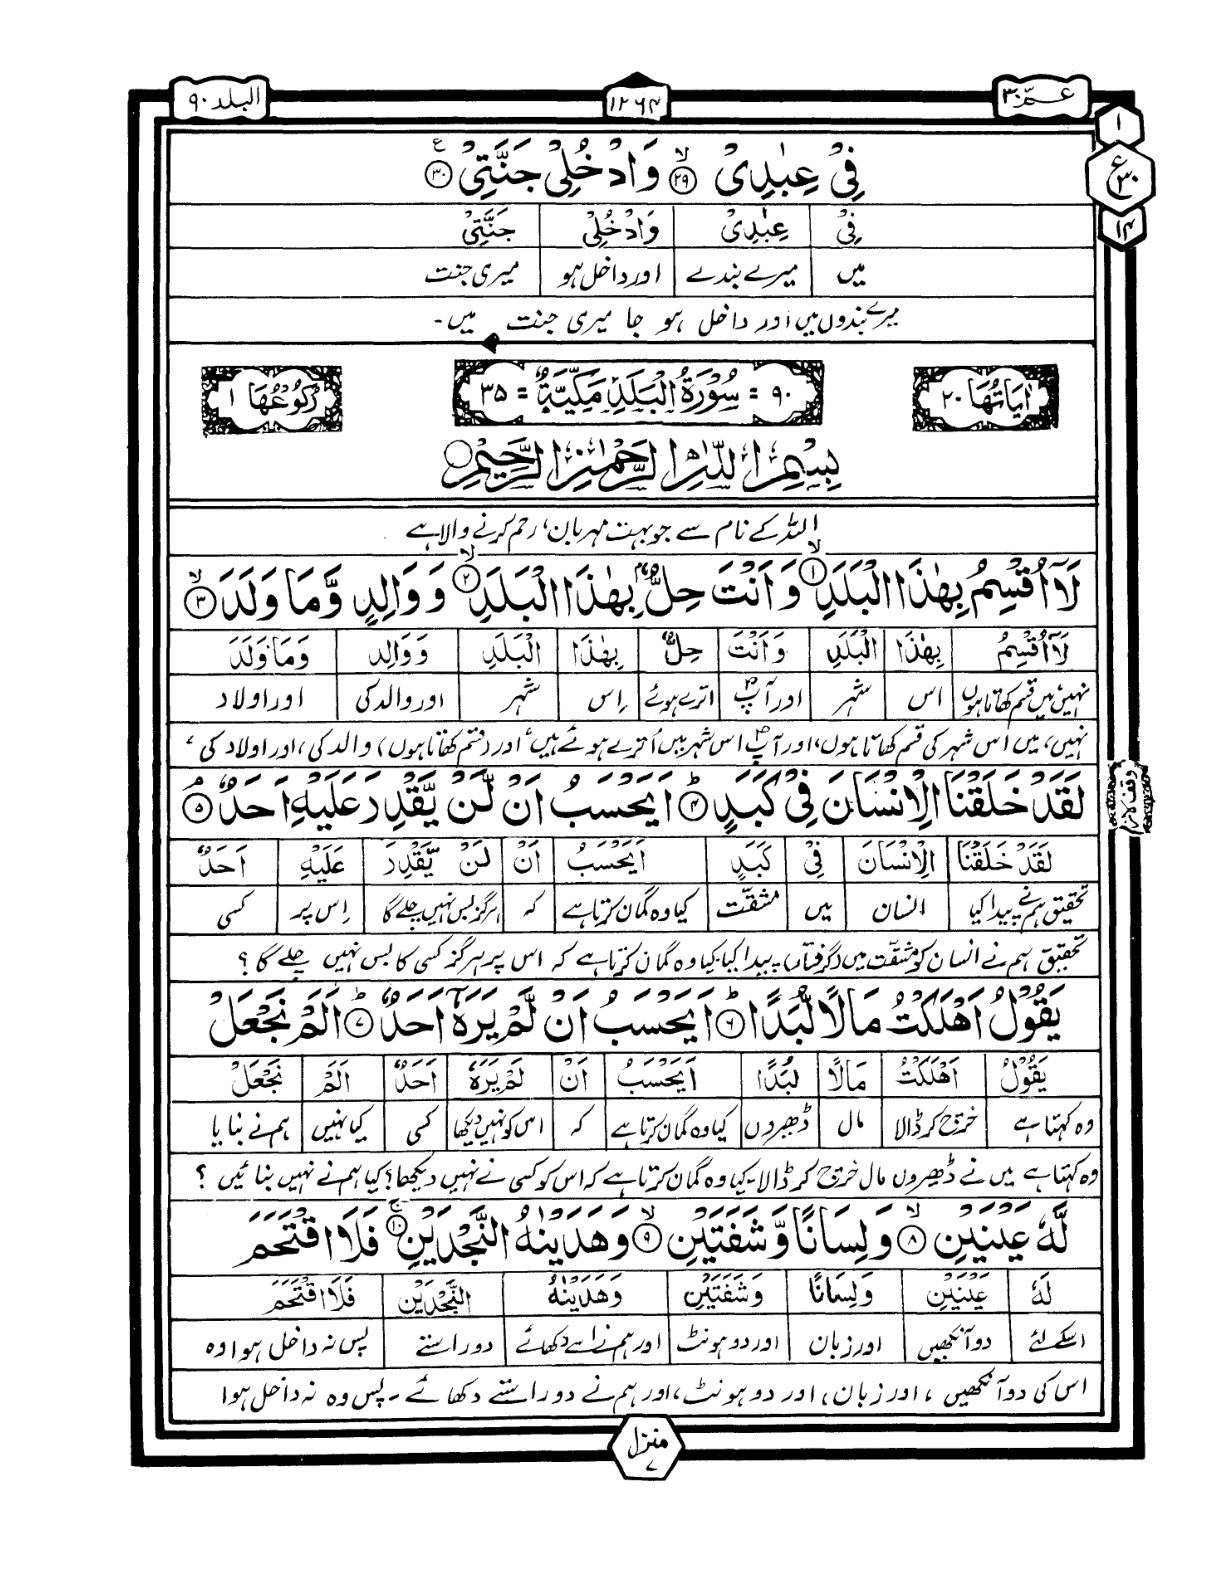 عـمّ ۳۰
۱۲۶۴
البلد ۹۰
۱
ع ۳۰
۱۴
فِیْ عِبٰدِیْ ﴿۲۹﴾ۙ وَادْخُلِیْ جَنَّتِیْ ﴿۳۰﴾
فِیْ عِبٰدِیْ وَادْخُلِیْ جَنَّتِیْ
میں میرے بندے اور داخل ہو میری جنت
میرے بندوں میں اور داخل ہو جا میری جنت میں۔
اٰیَاتُهَا ۲۰
۹۰ = سُوْرَةُ الْبَلَدِ مَكِّیَّةٌ = ۳۵
رُكُوْعُهَا ۱
بِسْمِ اللّٰهِ الرَّحْمٰنِ الرَّحِیْمِ
اللہ کے نام سے جو بہت مہربان، رحم کرنے والا ہے
لَاۤ اُقْسِمُ بِهٰذَا الْبَلَدِ ﴿۱﴾ۙ وَ اَنْتَ حِلٌّۢ بِهٰذَا الْبَلَدِ ﴿۲﴾ۙ وَ وَالِدٍ وَّمَا وَلَدَ ﴿۳﴾ۙ
لَاۤ اُقْسِمُ بِهٰذَا الْبَلَدِ وَ اَنْتَ حِلٌّۢ بِهٰذَا الْبَلَدِ وَ وَالِدٍ وَمَا وَلَدَ
نہیں، میں قسم کھاتا ہوں اس شہر اور آپؐ اترے ہوئے اِس شہر اور والد کی اور اولاد
نہیں، میں اس شہر کی قسم کھاتا ہوں، اور آپؐ اس شہر میں اُترے ہوئے ہیں، اور (قسم کھاتا ہوں) والد کی، اور اولاد کی،
لَقَدْ خَلَقْنَا الْاِنْسَانَ فِیْ كَبَدٍ ﴿۴﴾ؕ اَیَحْسَبُ اَنْ لَّنْ یَّقْدِرَ عَلَیْهِ اَحَدٌ ﴿۵﴾ۘ
وقف لازم
لَقَدْ خَلَقْنَا الْاِنْسَانَ فِیْ كَبَدٍ اَیَحْسَبُ اَنْ لَنْ یَّقْدِرَ عَلَیْهِ اَحَدٌ
تحقیق ہم نے پیدا کیا انسان میں مشقّت کیا وہ گمان کرتا ہے کہ ہرگز بس نہیں چلے گا اِس پر کسی
تحقیق ہم نے انسان کو مشقّت میں (گرفتار) پیدا کیا۔ کیا وہ گمان کرتا ہے کہ اس پر ہرگز کسی کا بس نہیں چلے گا؟
یَقُوْلُ اَهْلَكْتُ مَالًا لُّبَدًا ﴿۶﴾ؕ اَیَحْسَبُ اَنْ لَّمْ یَرَهٗۤ اَحَدٌ ﴿۷﴾ؕ اَلَمْ نَجْعَلْ
یَقُوْلُ اَهْلَكْتُ مَالًا لُّبَدًا اَیَحْسَبُ اَنْ لَمْ یَرَهٗۤ اَحَدٌ اَلَمْ نَجْعَلْ
وہ کہتا ہے خرچ کر ڈالا مال ڈھیروں کیا وہ گمان کرتا ہے کہ اس کو نہیں دیکھا کسی کیا نہیں ہم نے بنایا
وہ کہتا ہے میں نے ڈھیروں مال خرچ کر ڈالا۔ کیا وہ گمان کرتا ہے کہ اس کو کسی نے نہیں دیکھا؟ کیا ہم نے نہیں بنائیں؟
لَّهٗ عَیْنَیْنِ ﴿۸﴾ۙ وَ لِسَانًا وَّ شَفَتَیْنِ ﴿۹﴾ۙ وَ هَدَیْنٰهُ النَّجْدَیْنِ ﴿۱۰﴾ۚ فَلَا اقْتَحَمَ
لَهٗ عَیْنَیْنِ وَ لِسَانًا وَ شَفَتَیْنِ وَ هَدَیْنٰهُ النَّجْدَیْنِ فَلَا اقْتَحَمَ
اسکے لئے دو آنکھیں اور زبان اور دو ہونٹ اور ہم نے اسے دکھائے دو راستے پس نہ داخل ہوا وہ
اس کی دو آنکھیں، اور زبان، اور دو ہونٹ، اور ہم نے دو راستے دکھائے۔ پس وہ نہ داخل ہوا
منزل ۷